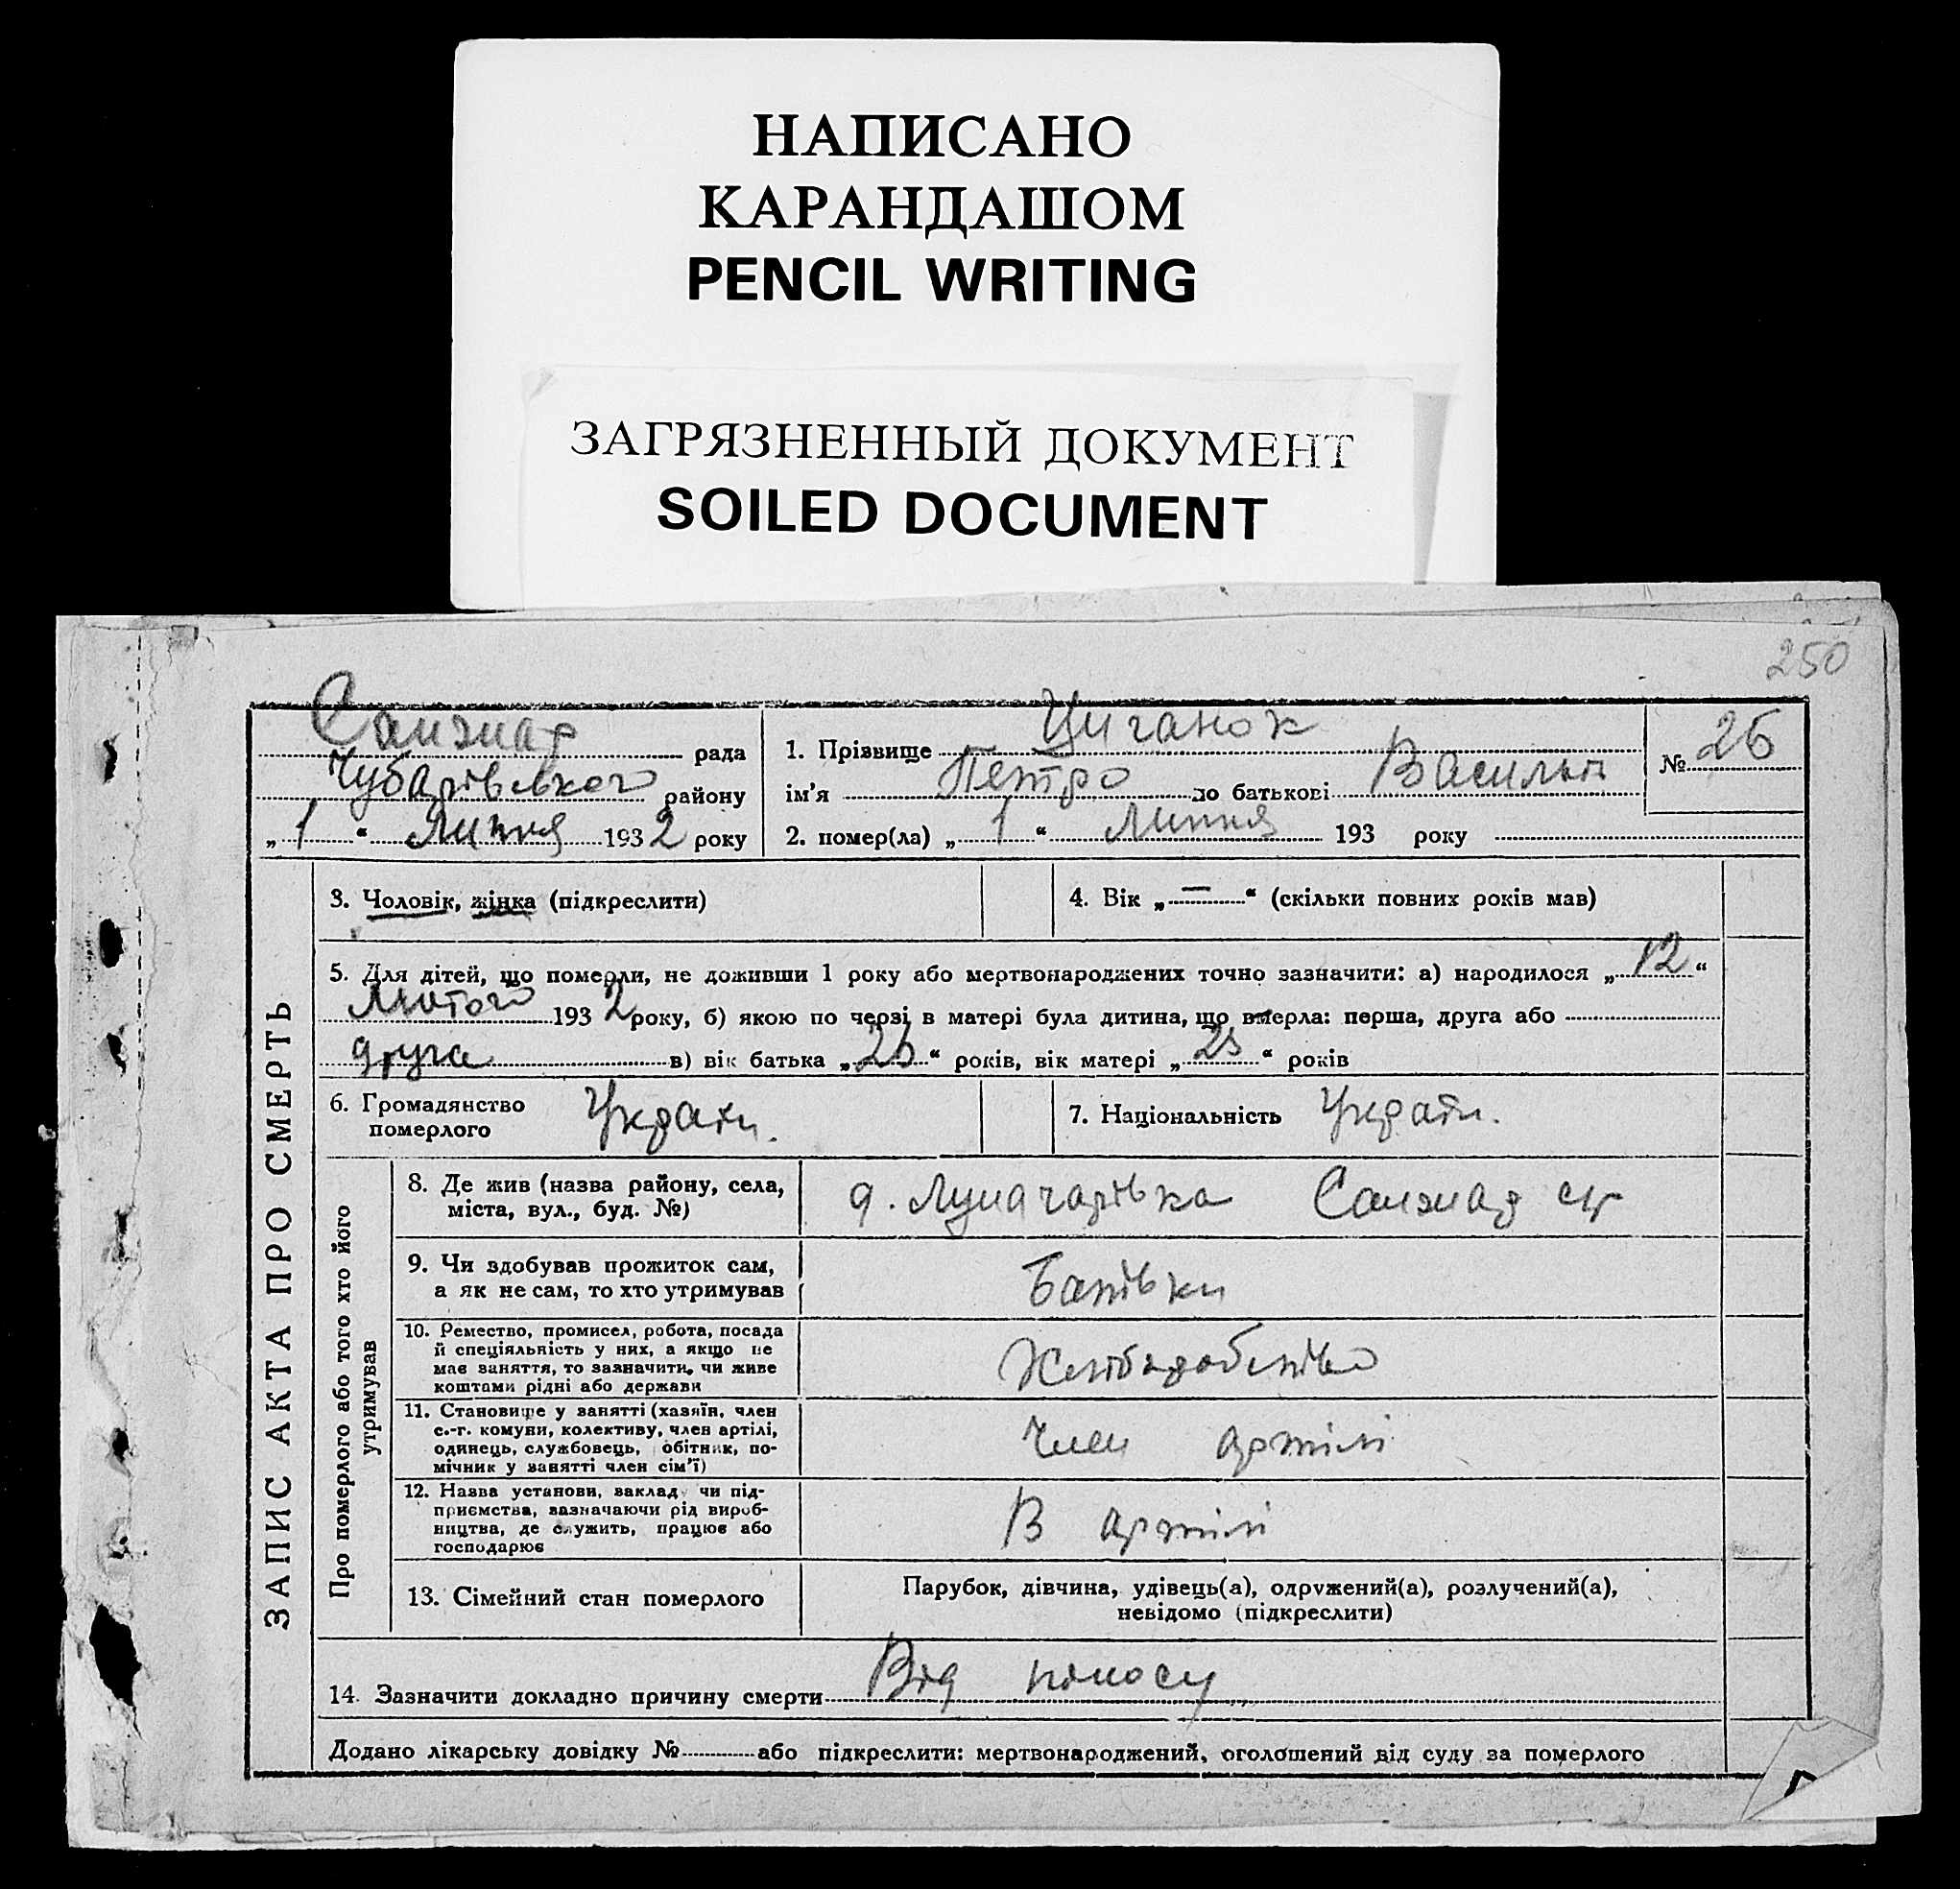 НАПИСАНО
КАРАНДАШОМ
PENCIL WRITING
ЗАГРЯЗНЕННЫЙ ДОКУМЕНТ
SOILED DOCUMENT
250
Санжар рада
Чубарівського району
„ 1 “ Липня 1932 року
1. Прізвище Циганок
ім'я Петро по батькові Василів
2. помер(ла) „ 1 “ Липня 193 року
№ 26
ЗАПИС АКТА ПРО СМЕРТЬ
3. Чоловік, жінка (підкреслити)
4. Вік „ — “ (скільки повних років мав)
5. Для дітей, що померли, не доживши 1 року або мертвонароджених точно зазначити: а) народилося „ 12 “
Лютого 1932 року, б) якою по черзі в матері була дитина, що вмерла: перша, друга або
друга в) вік батька „ 26 “ років, вік матері „ 25 “ років
6. Громадянство
померлого
Україн.
7. Національність Україн.
Про померлого або того хто його
утримував
8. Де жив (назва району, села,
міста, вул., буд. №)
д. Луначарівка Санжар ср
9. Чи здобував прожиток сам,
а як не сам, то хто утримував
Батьки
10. Ремество, промисел, робота, посада
й спеціяльність у них, а якщо не
має заняття, то зазначити, чи живе
коштами рідні або держави
Хліборобство
11. Становище у занятті (хазяїн, член
с.-г. комуни, колективу, член артілі,
одинець, службовець, обітник, по-
мічник у занятті член сім'ї)
Член артілі
12. Назва установи, заклад чи під-
приємства, зазначаючи рід вироб-
ництва, де служить, працює або
господарює
В артілі
13. Сімейний стан померлого
Парубок, дівчина, удівець(а), одружений(а), розлучений(а),
невідомо (підкреслити)
14. Зазначити докладно причину смерти Від поносу
Додано лікарську довідку № або підкреслити: мертвонароджений, оголошений від суду за померлого